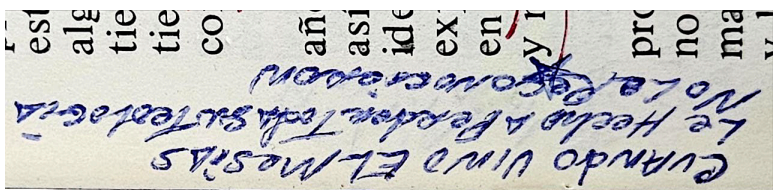 est
alg
tie
tie
co
añ
así
ide
ex
en
y
pro
no
ma
CUANDO VINO EL MESIAS
Le Hecho A Perder Toda su Teología
No Le Reconocieron